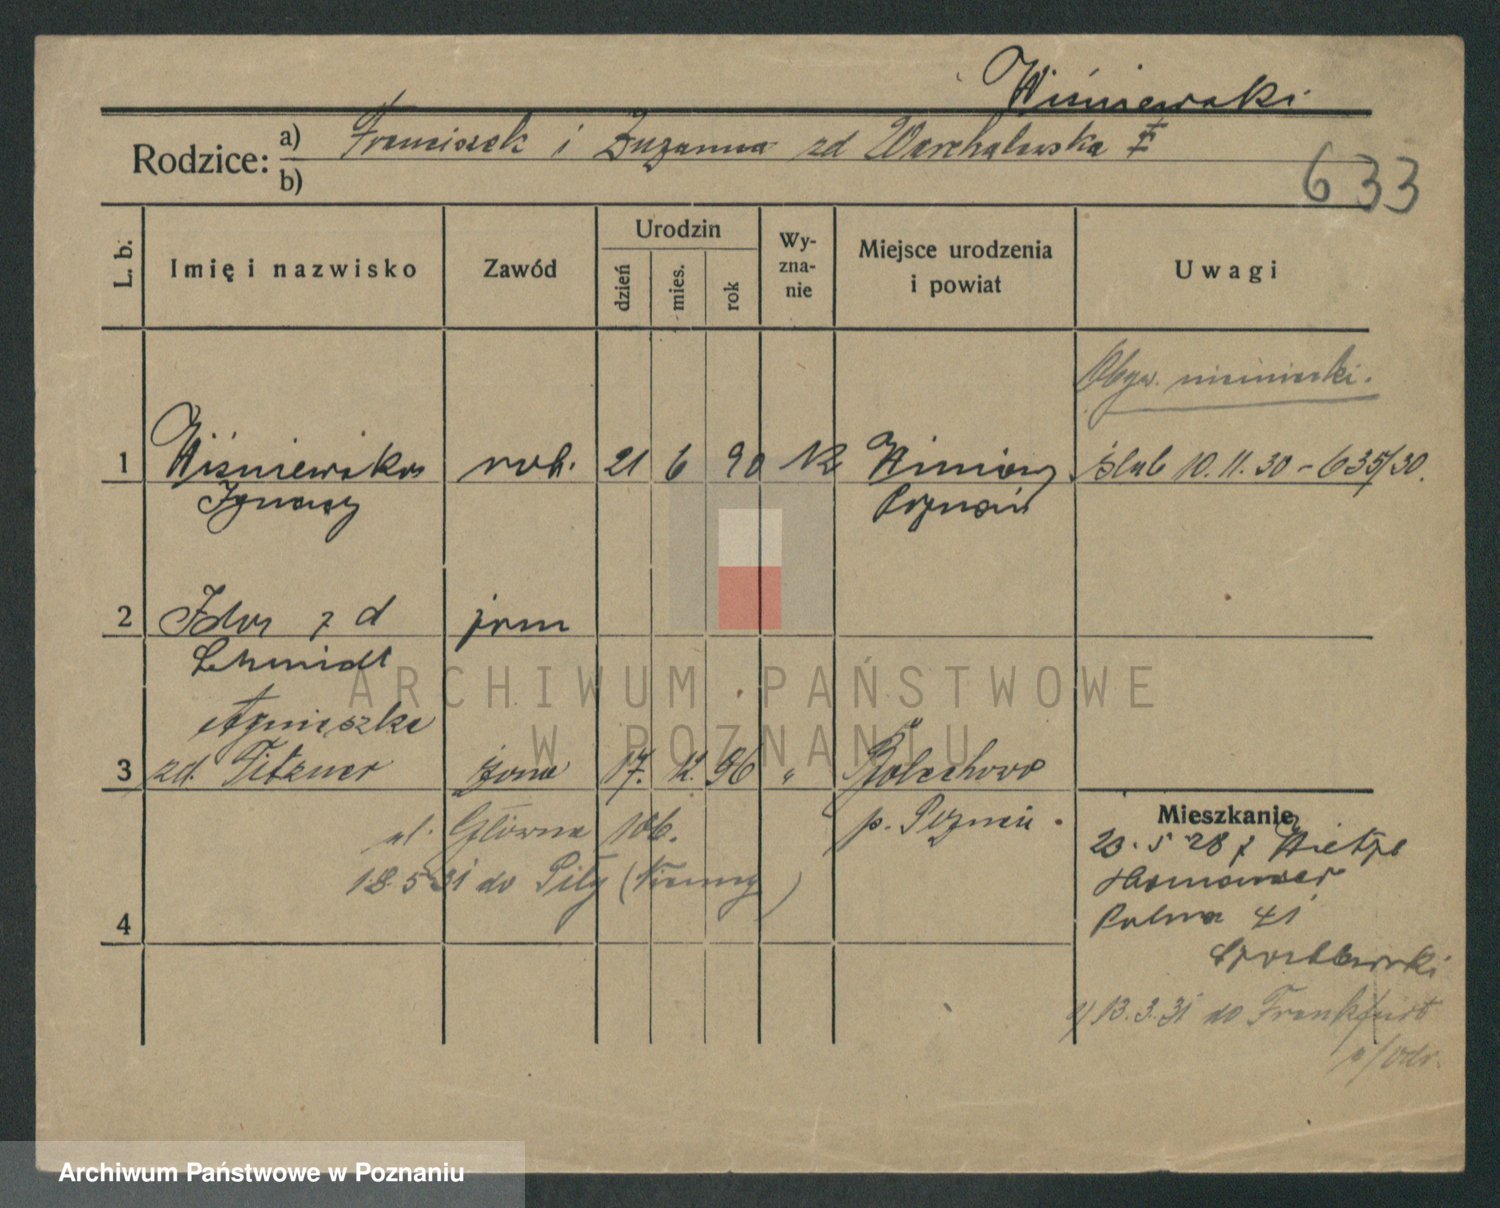 Wiśniewski
Rodzice: a) Franciszek i Zuzanna zd Warchalewska
b)
633
L. b.
Imię i nazwisko
Zawód
Urodzin
dzień
mies.
rok
Wy-
zna-
nie
Miejsce urodzenia
i powiat
Uwagi
Obyw. niemiecki.
1 Wiśniewski rob. 21 6 90 Winiary ślub 10.11.30 - 635/30.
Ignacy Poznań
2 Ida z d żona
Schmidt
ARCHIWUM PAŃSTWOWE
W POZNANIU
Agnieszka
3 zd. Titzner żona 17. 12. 96 "
p. Poznań.
ul. Główna 106.
18.5 31 do Piły (Niemcy)
4
Mieszkanie
23.5 28 z
Hannower
Polna 41
13.3.31 do Frankfurt
n/Odr.
Archiwum Państwowe w Poznaniu